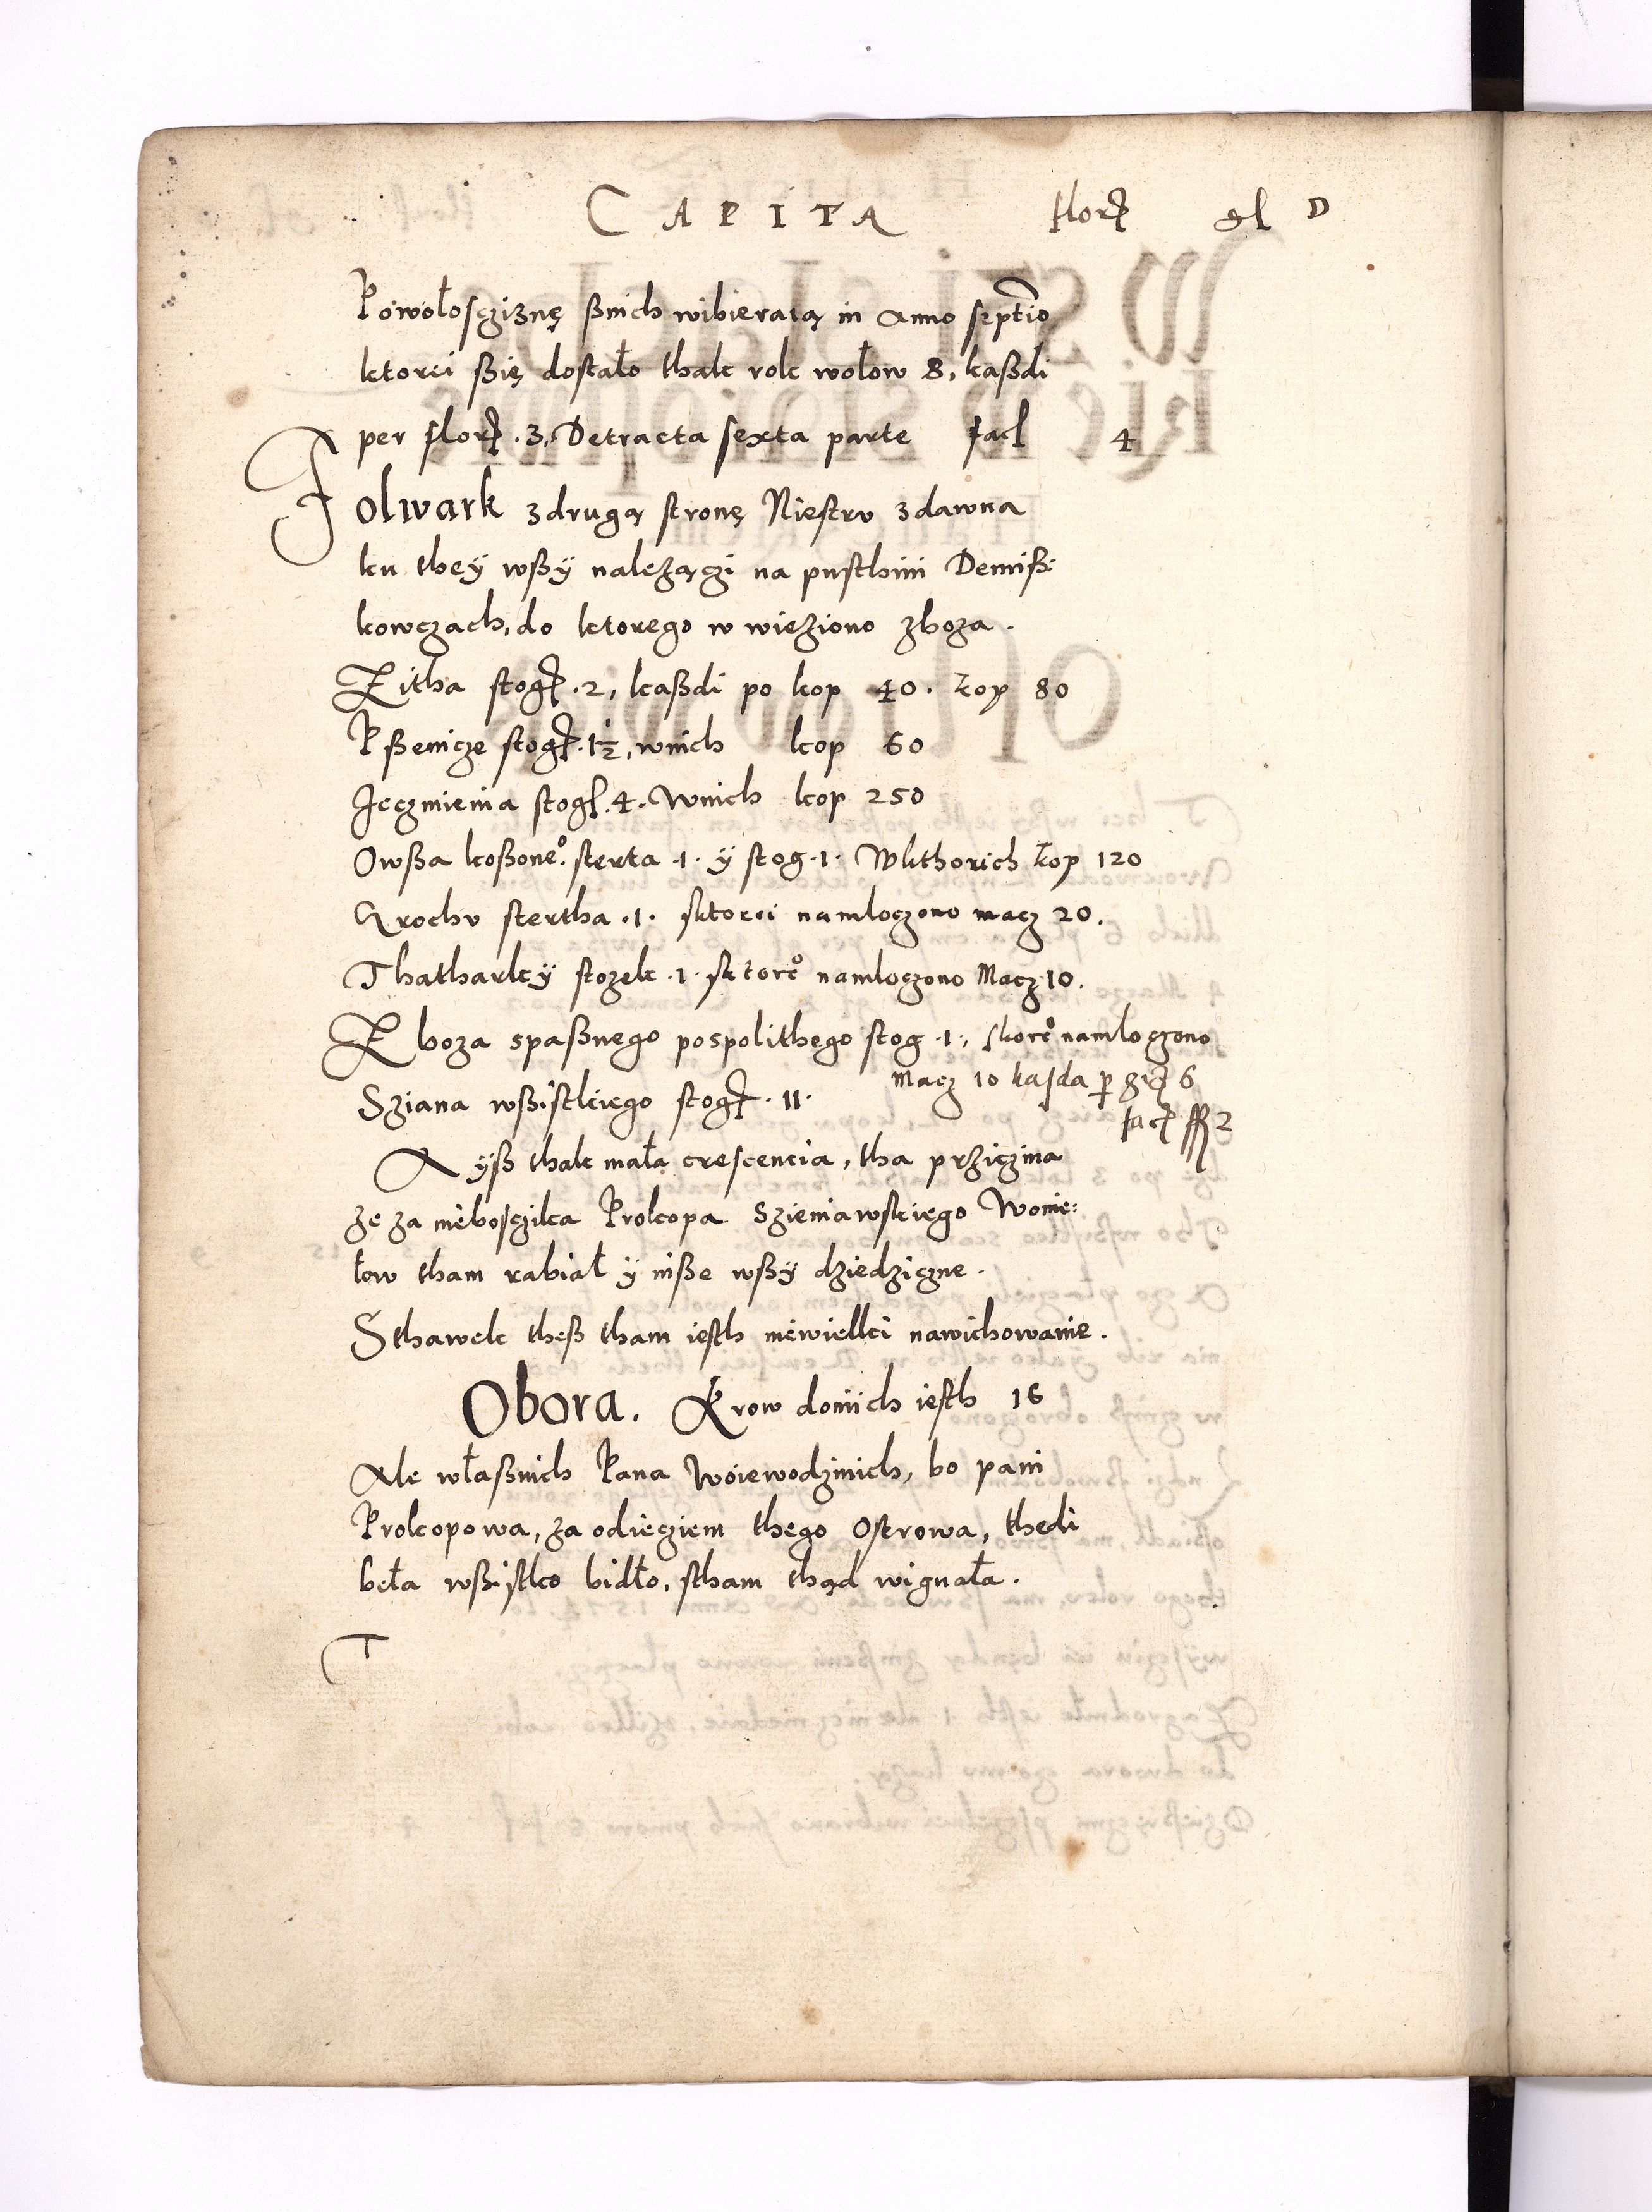 CAPITA flor gl D
Powołosczisnę ßnich wibieraią in anno septio
ktorei ßię dostało thak rok wołow 8, kaßdi
per flor .3, Detracta sexta parte facl 4
Folwark zdrugą stronę Niestru zdawna
ku theÿ wßÿ nalezączi na pusthini Demiß:
kowczach, do ktorego w wieziono zboza.
Zitha stog .2, kaßdi po kop 40. kop 80
Pßenicze stog .1½, wnich kop 60
Jęczmienia stog .4. Wnich kop 250
Owßa koßone⁰. sterta .1. ÿ stog .1. Wkthorich kop 120
Grochu stertha .1. sktorei namloczono macz 20.
Thatharkeÿ stozek .1. sktore⁰ namloczono Macz 10.
Zboza spaßnego pospolithego stog .1., skore⁰ namloczono
macz 10 kasda p gr 6
Sziana wßistkiego stog .11.
fac ff 2
A ÿß thak mała crescencia, tha prziczina
ze za niebosczika Prokopa Szieniawskiego Wonie:
tow tham rabiał ÿ inße wßÿ dziedziczne.
Sthawek theß tham iesth niewielki nawichowanie.
Obora. Krow doniich iesth 16
Ale własnich Pana Woiewodzinich, bo pani
Prokopowa, za odięciem thego Ostrowa, thedi
beła wßistko bidło, stham thąd wignała.
T